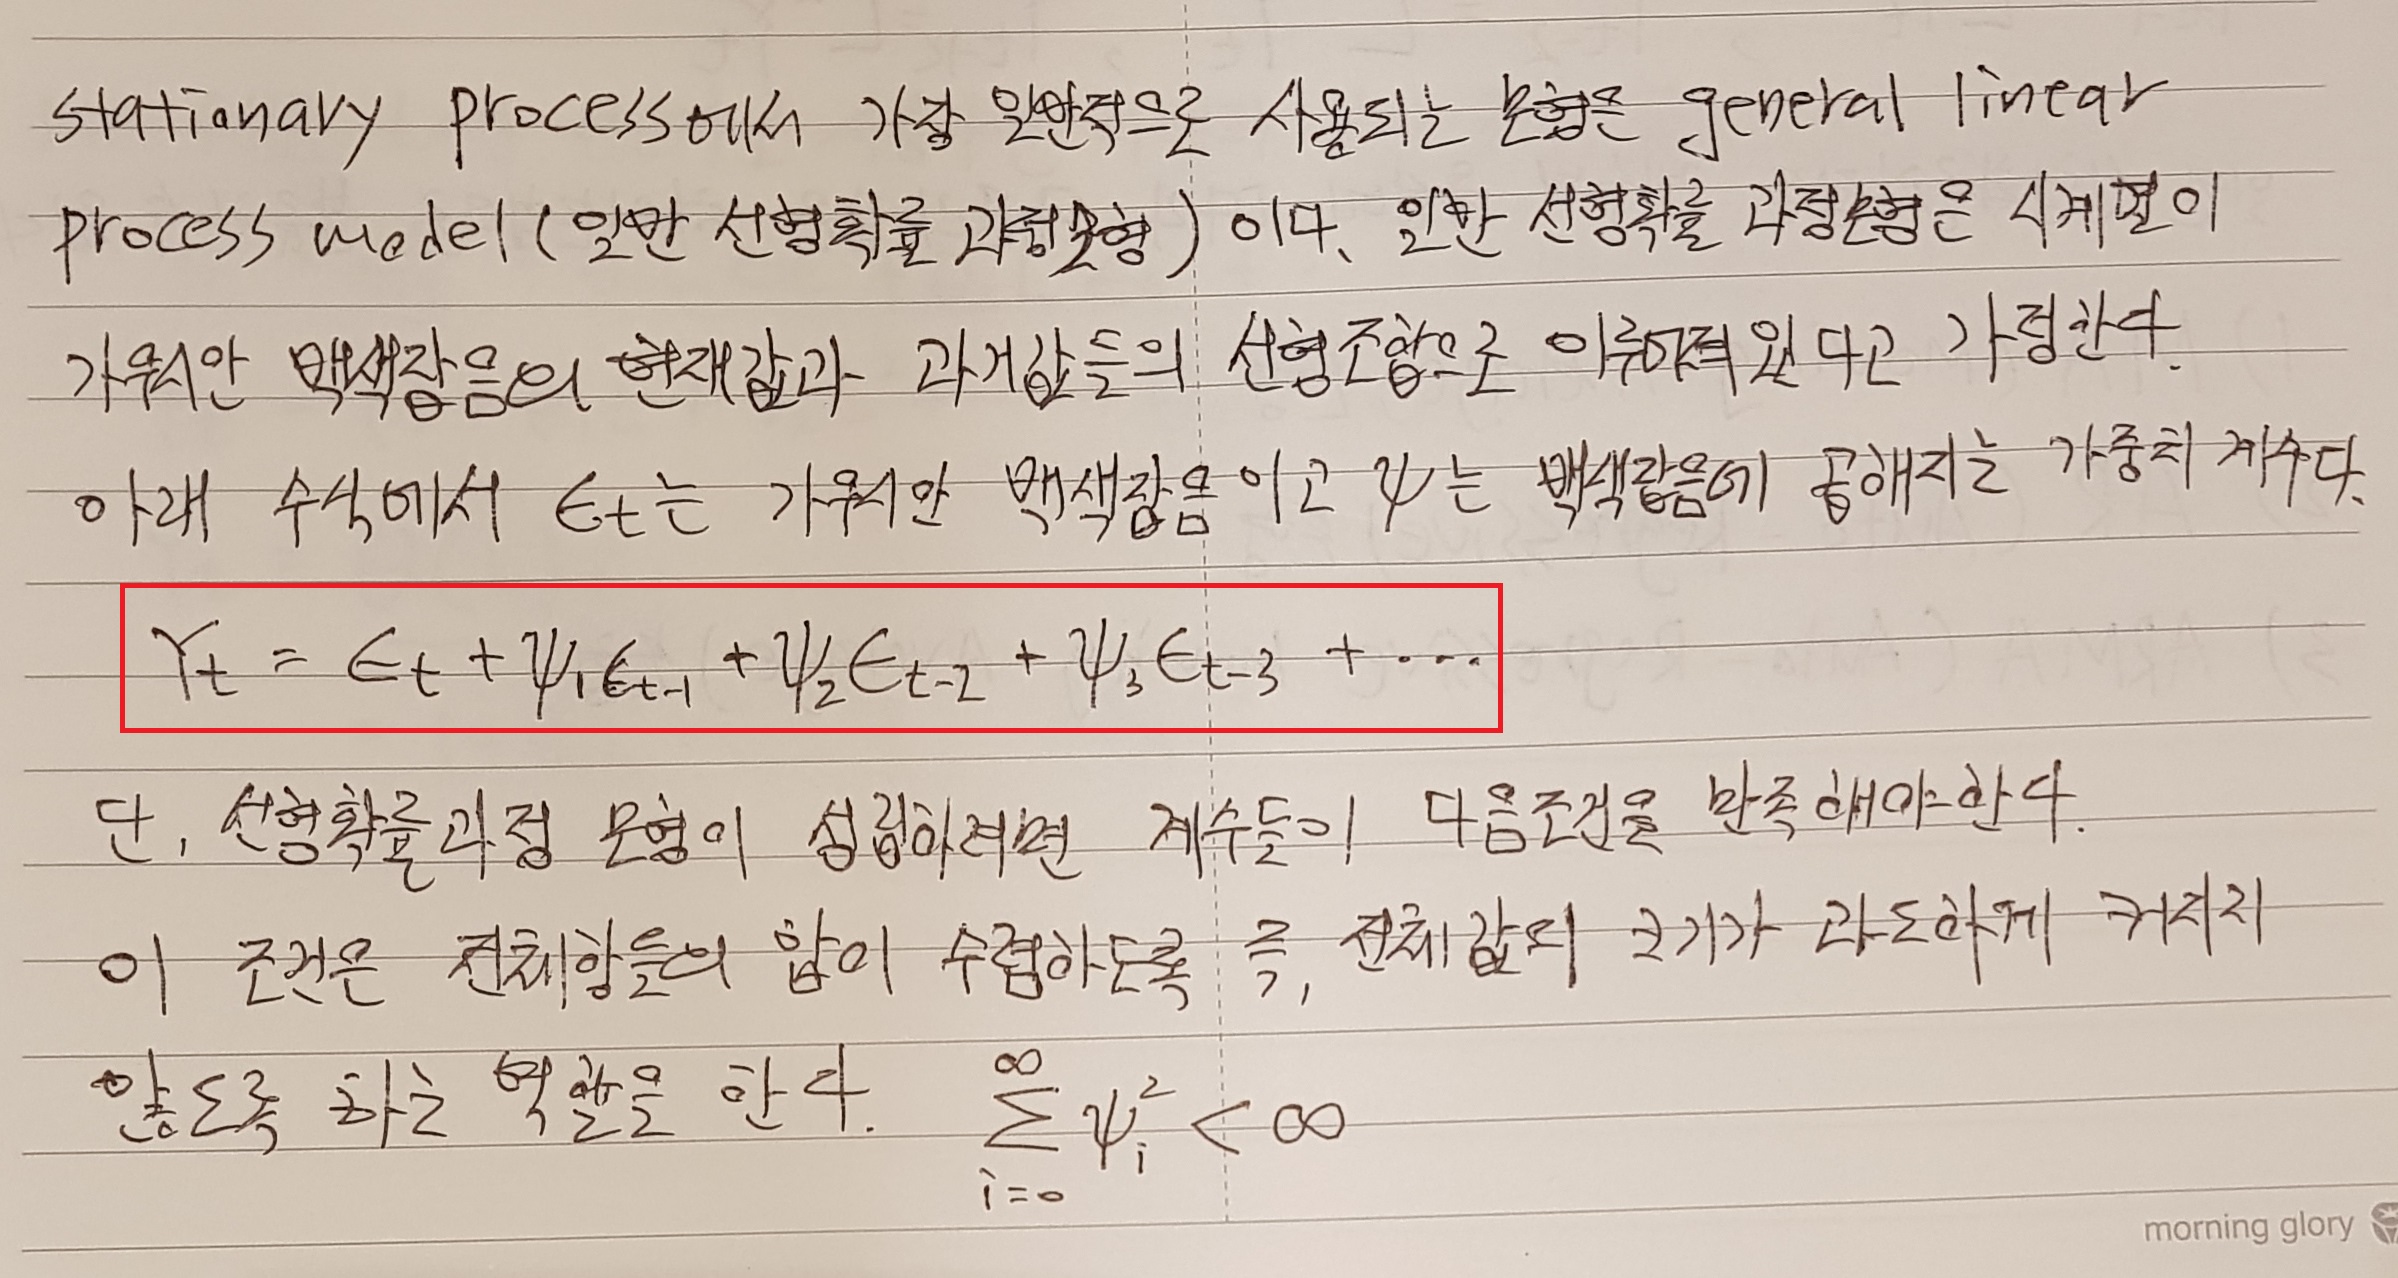 stationary process에서 가장 일반적으로 사용되는 모형은 general linear
process model (일반 선형확률 과정모형) 이다. 일반 선형확률 과정모형은 시계열이
가우시안 백색잡음의 현재값과 과거값들의 선형조합으로 이루어져 있다고 가정한다.
아래 수식에서 ϵt는 가우시안 백색잡음이고 ψ는 백색잡음에 곱해지는 가중치 계수다.
Yt = ϵt + ψ1ϵt-1 + ψ2ϵt-2 + ψ3ϵt-3 + ...
단, 선형확률과정 모형이 성립하려면 계수들이 다음조건을 만족해야한다.
이 조건은 전체항들의 합이 수렴하도록 즉, 전체값의 크기가 과도하게 커지지
않도록 하는 역할을 한다. ∞∑i=0 ψi² < ∞
morning glory